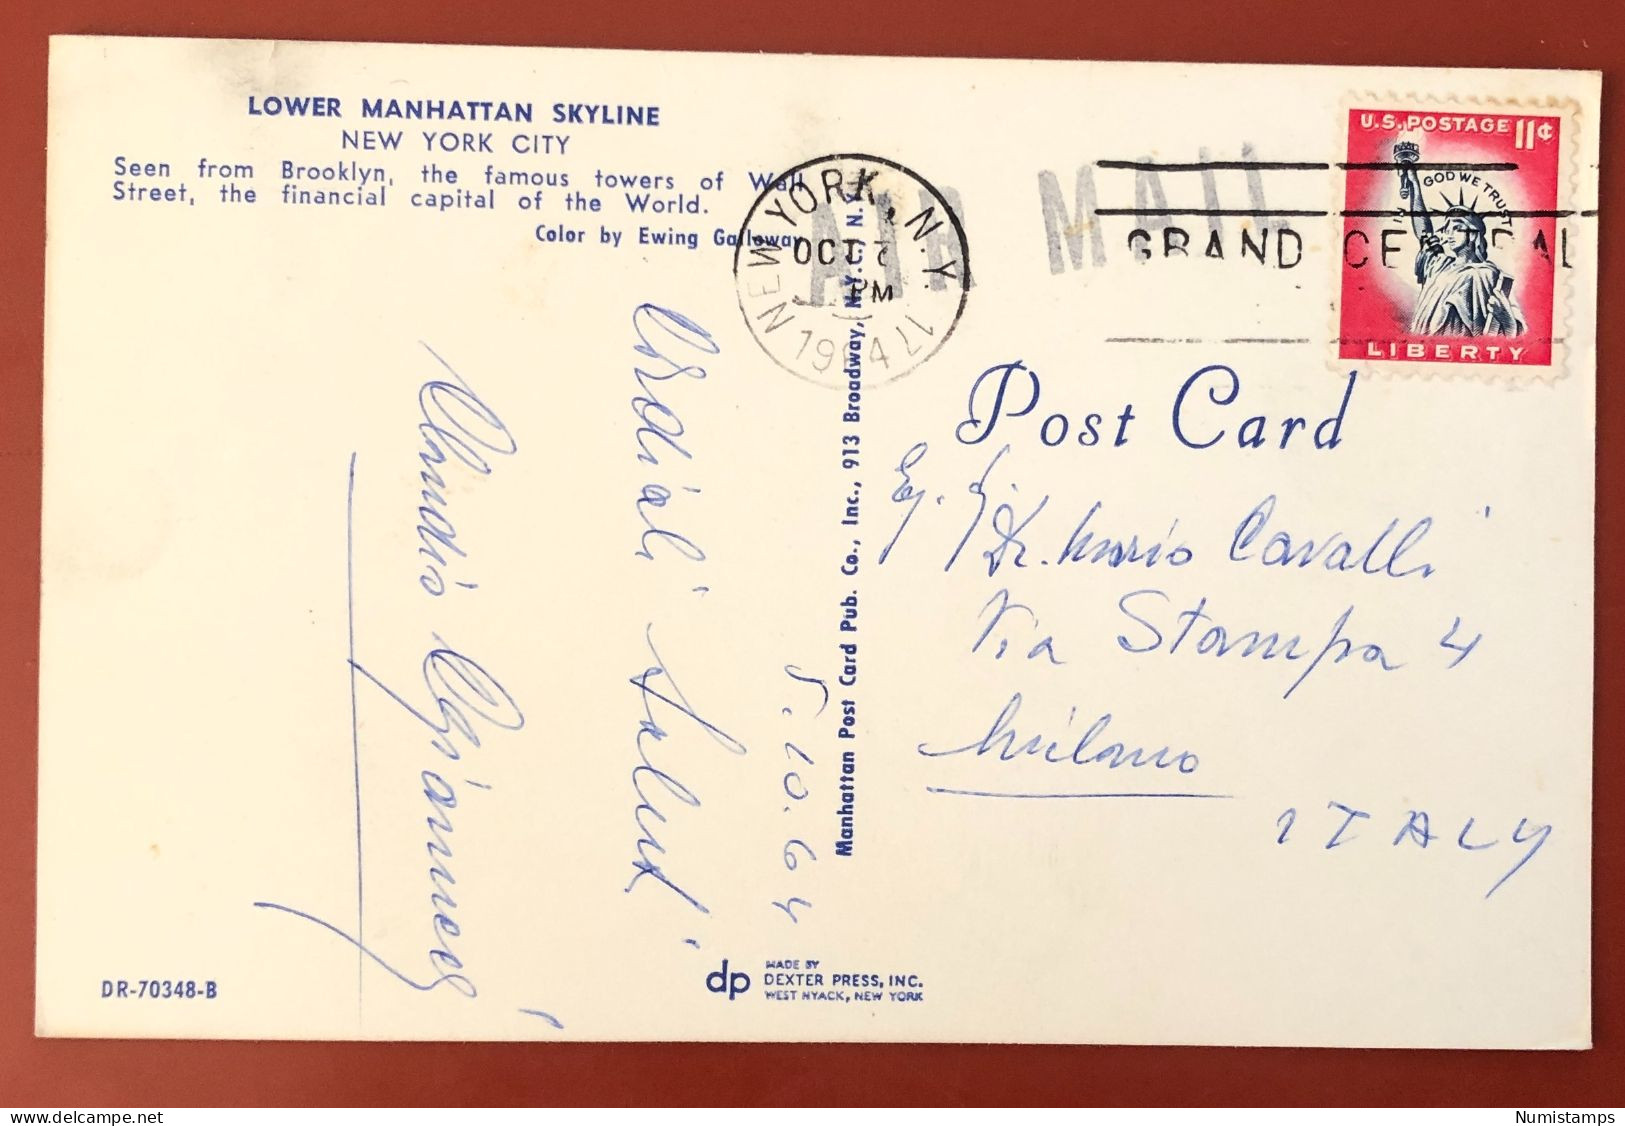 LOWER MANHATTAN SKYLINE
NEW YORK CITY
Seen from Brooklyn, the famous towers of Wall
Street, the financial capital of the World.
Color by Ewing Galloway
Cordiali Saluti
5.10.64
DR-70348-B
Manhattan Post Card Pub. Co., Inc., 913 Broadway, N.Y.C., N.Y.
dp
MADE BY
DEXTER PRESS, INC.
WEST NYACK, NEW YORK
NEW YORK, N.Y.
OCT
PM
1964
AIR MAIL
GRAND CENTRAL
U.S. POSTAGE 11¢
IN GOD WE TRUST
LIBERTY
Post Card
Eg. Sig.
Dr. Mario Cavalli
Via Stampa 4
Milano
ITALY
Numistamps
delcampe.net